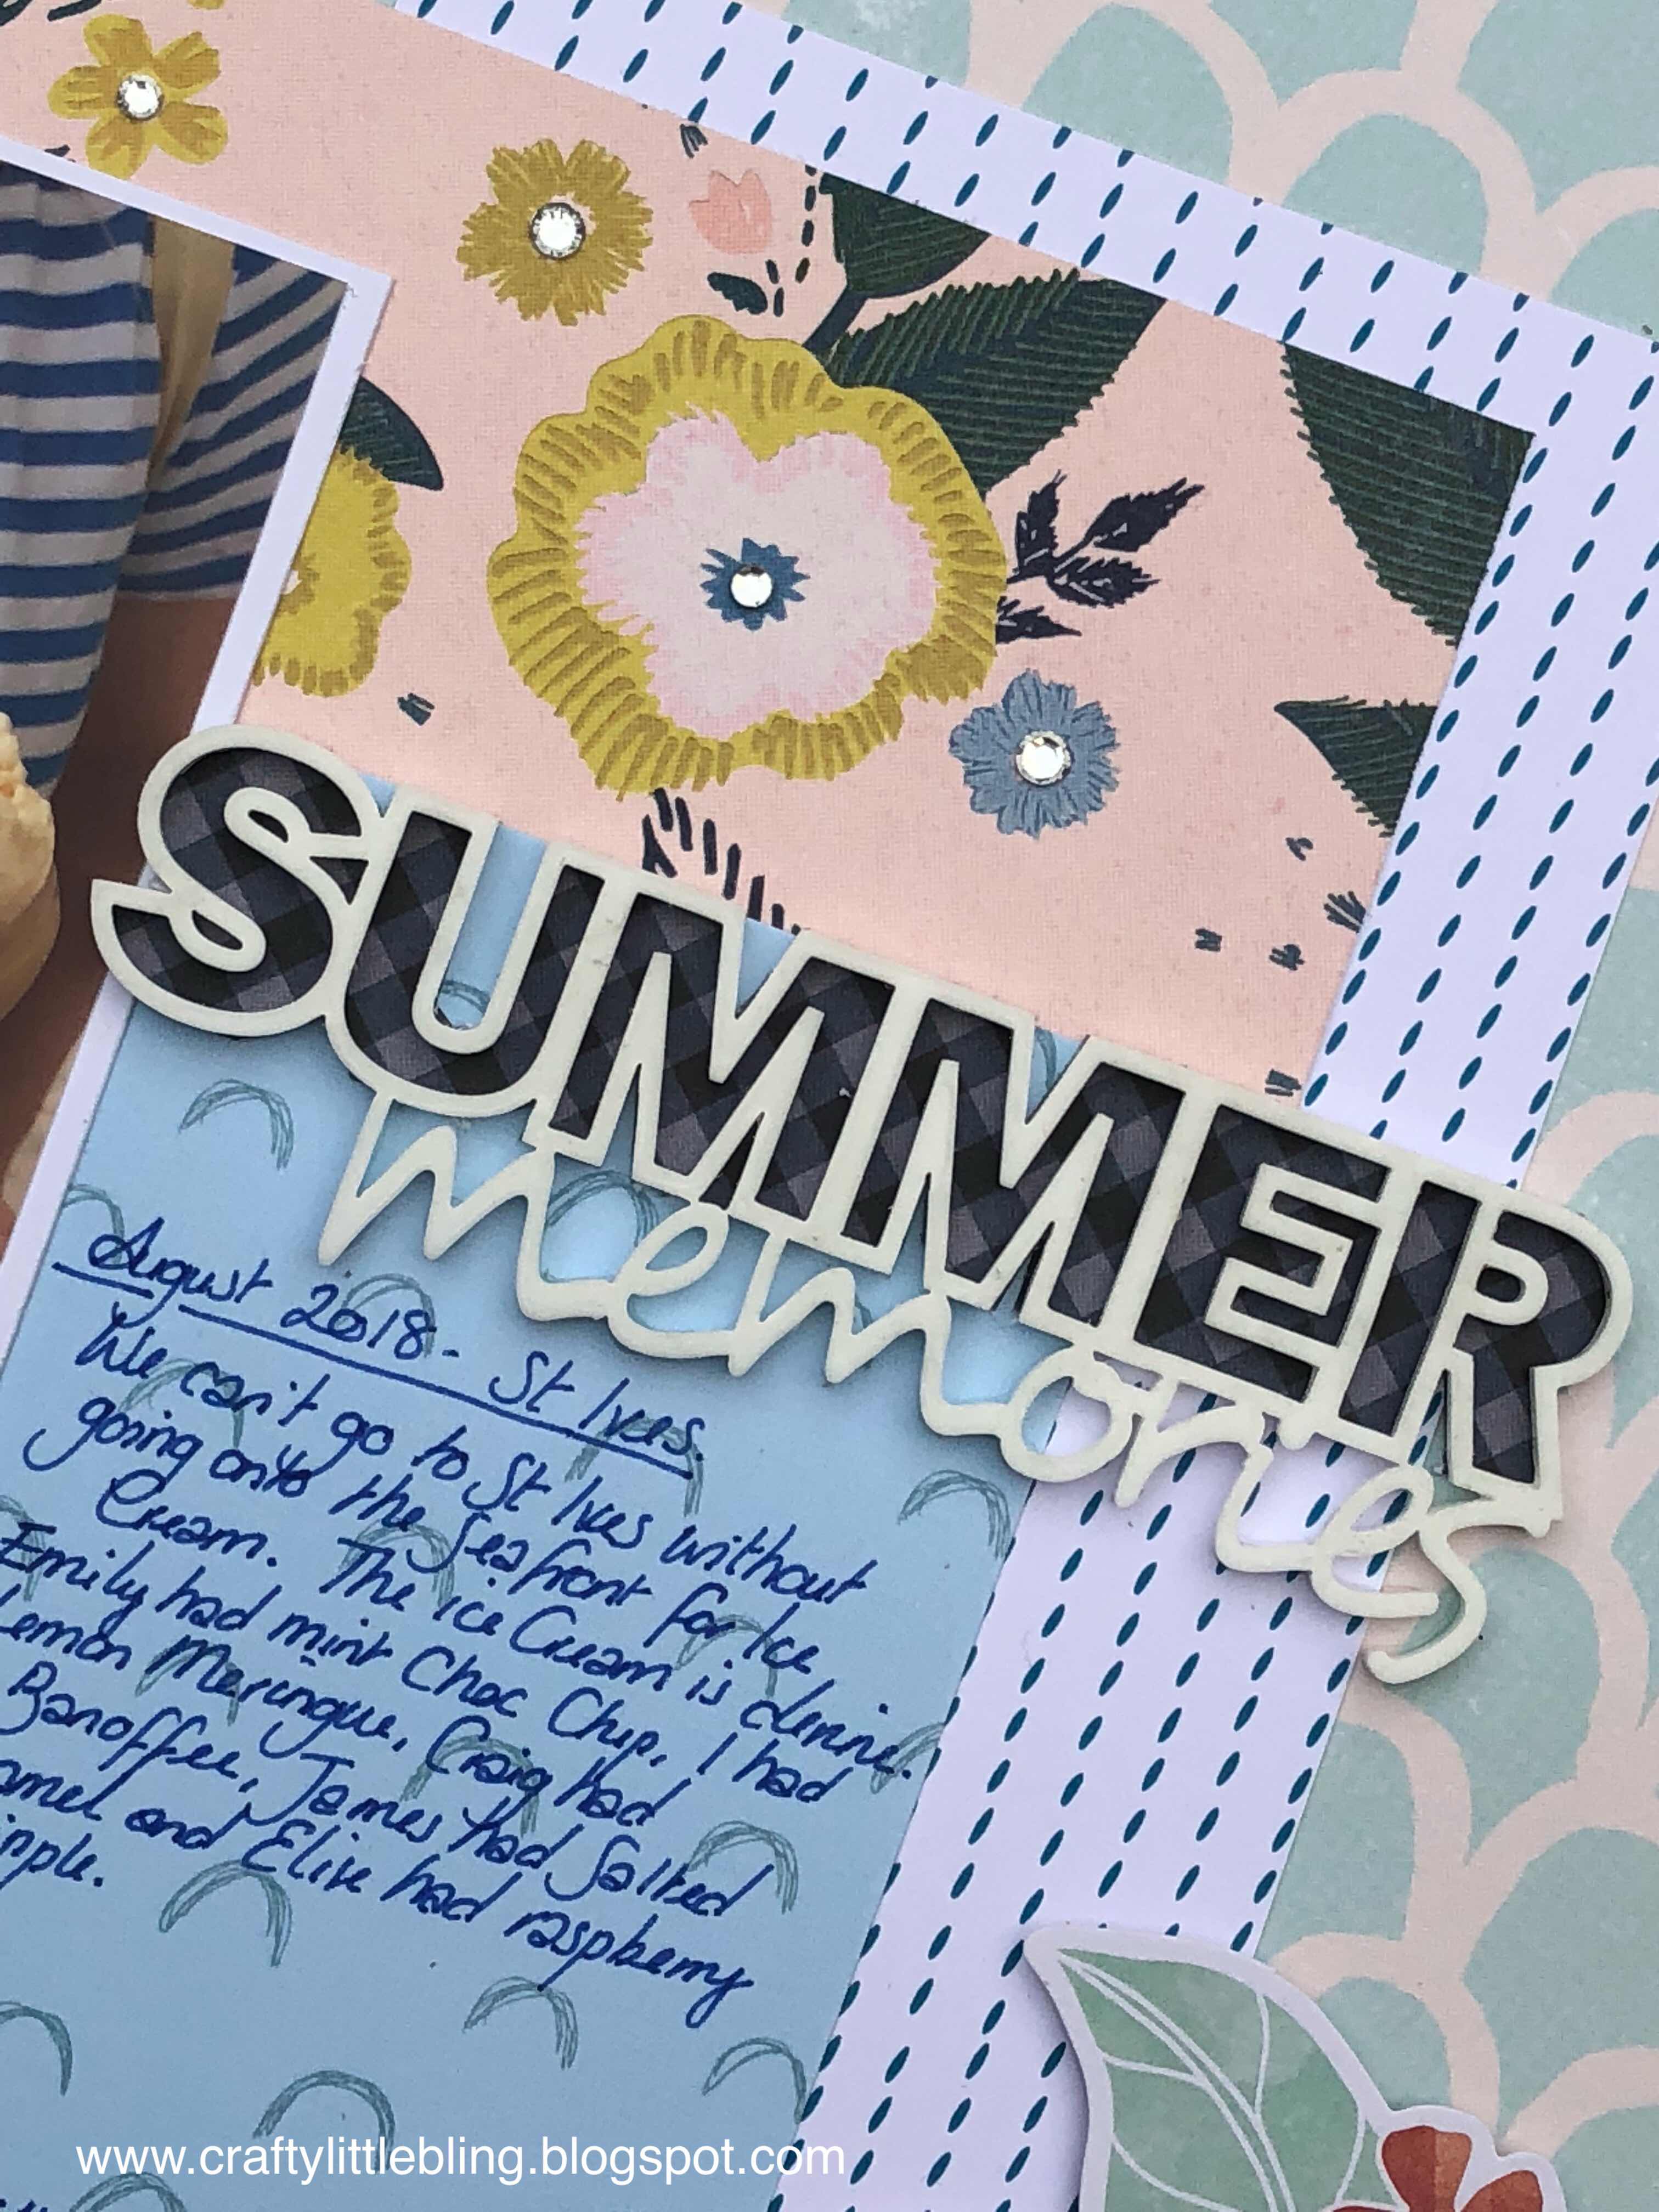 SUMMER
memories
August 2018 - St Ives.
We can't go to St Ives without
going onto the Seafront for Ice
Cream. The ice Cream is divine.
Emily had mint Choc Chip, I had
Lemon Meringue, Craig had
Banoffee, James had Salted
amel and Elise had raspberry
ipple.
www.craftylittlebling.blogspot.com